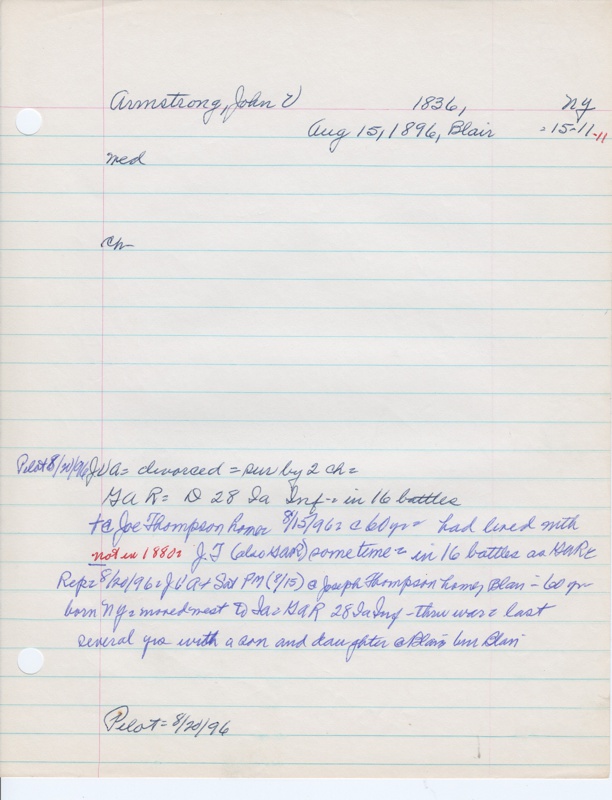 Armstrong, John V 1836, Ny
Aug 15, 1896, Blair = 15-11-11
med
ch-
Pilot 8/20/96 J V A = divorced = sur by 2 ch =
G A R = D 28 Ia Inf - in 16 battles
+ @ Joe Thompson home 8/15/96 = c 60 yr = had lived with
not in 1880 = J. T (also GAR) some time = in 16 battles as GAR
Rep = 8/20/96 = J V A + Sat PM (8/15) @ Joseph Thompson home, Blair = 60 yr
born Ny = moved west to Ia = GAR 28 Ia Inf - thru war = last
several yrs with a son and daughter @ Blair bur Blair
Pilot = 8/20/96